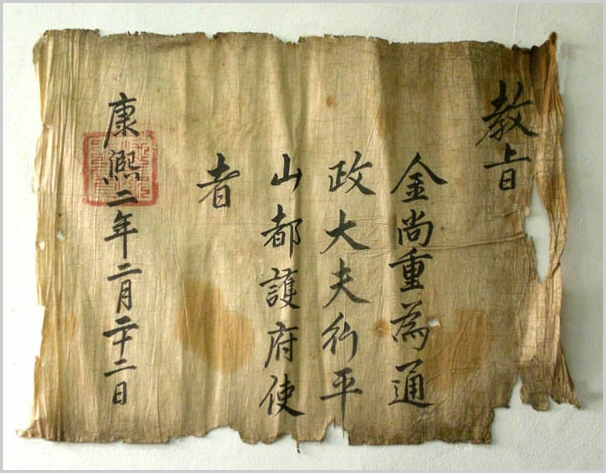 教旨
金尚重為通
政大夫行平
山都護府使
者
康熙二年二月二十二日